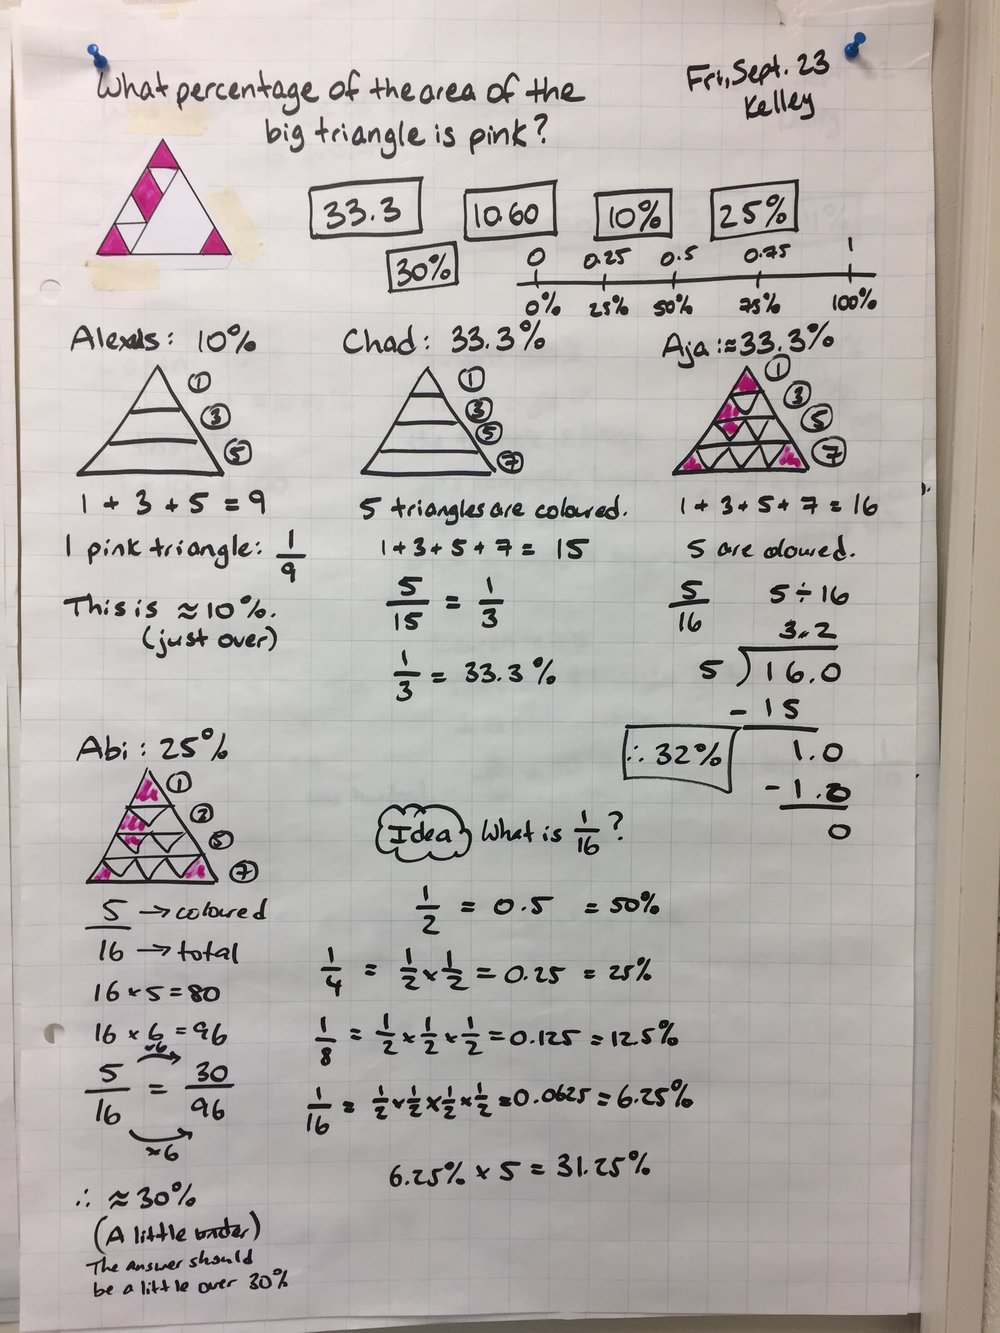 What percentage of the area of the
big triangle is pink?
Fri, Sept. 23
Kelley
33.3
10.60
10%
25%
30%
0 0.25 0.5 0.75 1
0% 25% 50% 75% 100%
Alexis: 10%
①
③
⑤
1 + 3 + 5 = 9
1 pink triangle: 1/9
This is ≈ 10%.
(just over)
Chad: 33.3%
①
③
⑤
⑦
5 triangles are coloured.
1 + 3 + 5 + 7 = 15
5/15 = 1/3
1/3 = 33.3%
Aja: ≈ 33.3%
①
③
⑤
⑦
1 + 3 + 5 + 7 = 16
5 are coloured.
5/16 5 ÷ 16
3.2
5 ) 16.0
- 15
1.0
- 1.0
0
∴ 32%
Abi: 25%
①
③
⑤
⑦
5 → coloured
16 → total
16 × 5 = 80
16 × 6 = 96
×6
5/16 = 30/96
×6
∴ ≈ 30%
(A little under)
The answer should
be a little over 30%
Idea What is 1/16?
1/2 = 0.5 = 50%
1/4 = 1/2 × 1/2 = 0.25 = 25%
1/8 = 1/2 × 1/2 × 1/2 = 0.125 = 12.5%
1/16 = 1/2 × 1/2 × 1/2 × 1/2 = 0.0625 = 6.25%
6.25% × 5 = 31.25%